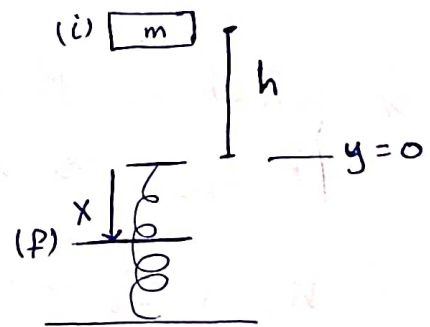 (i) m
h
y = 0
x
(f)